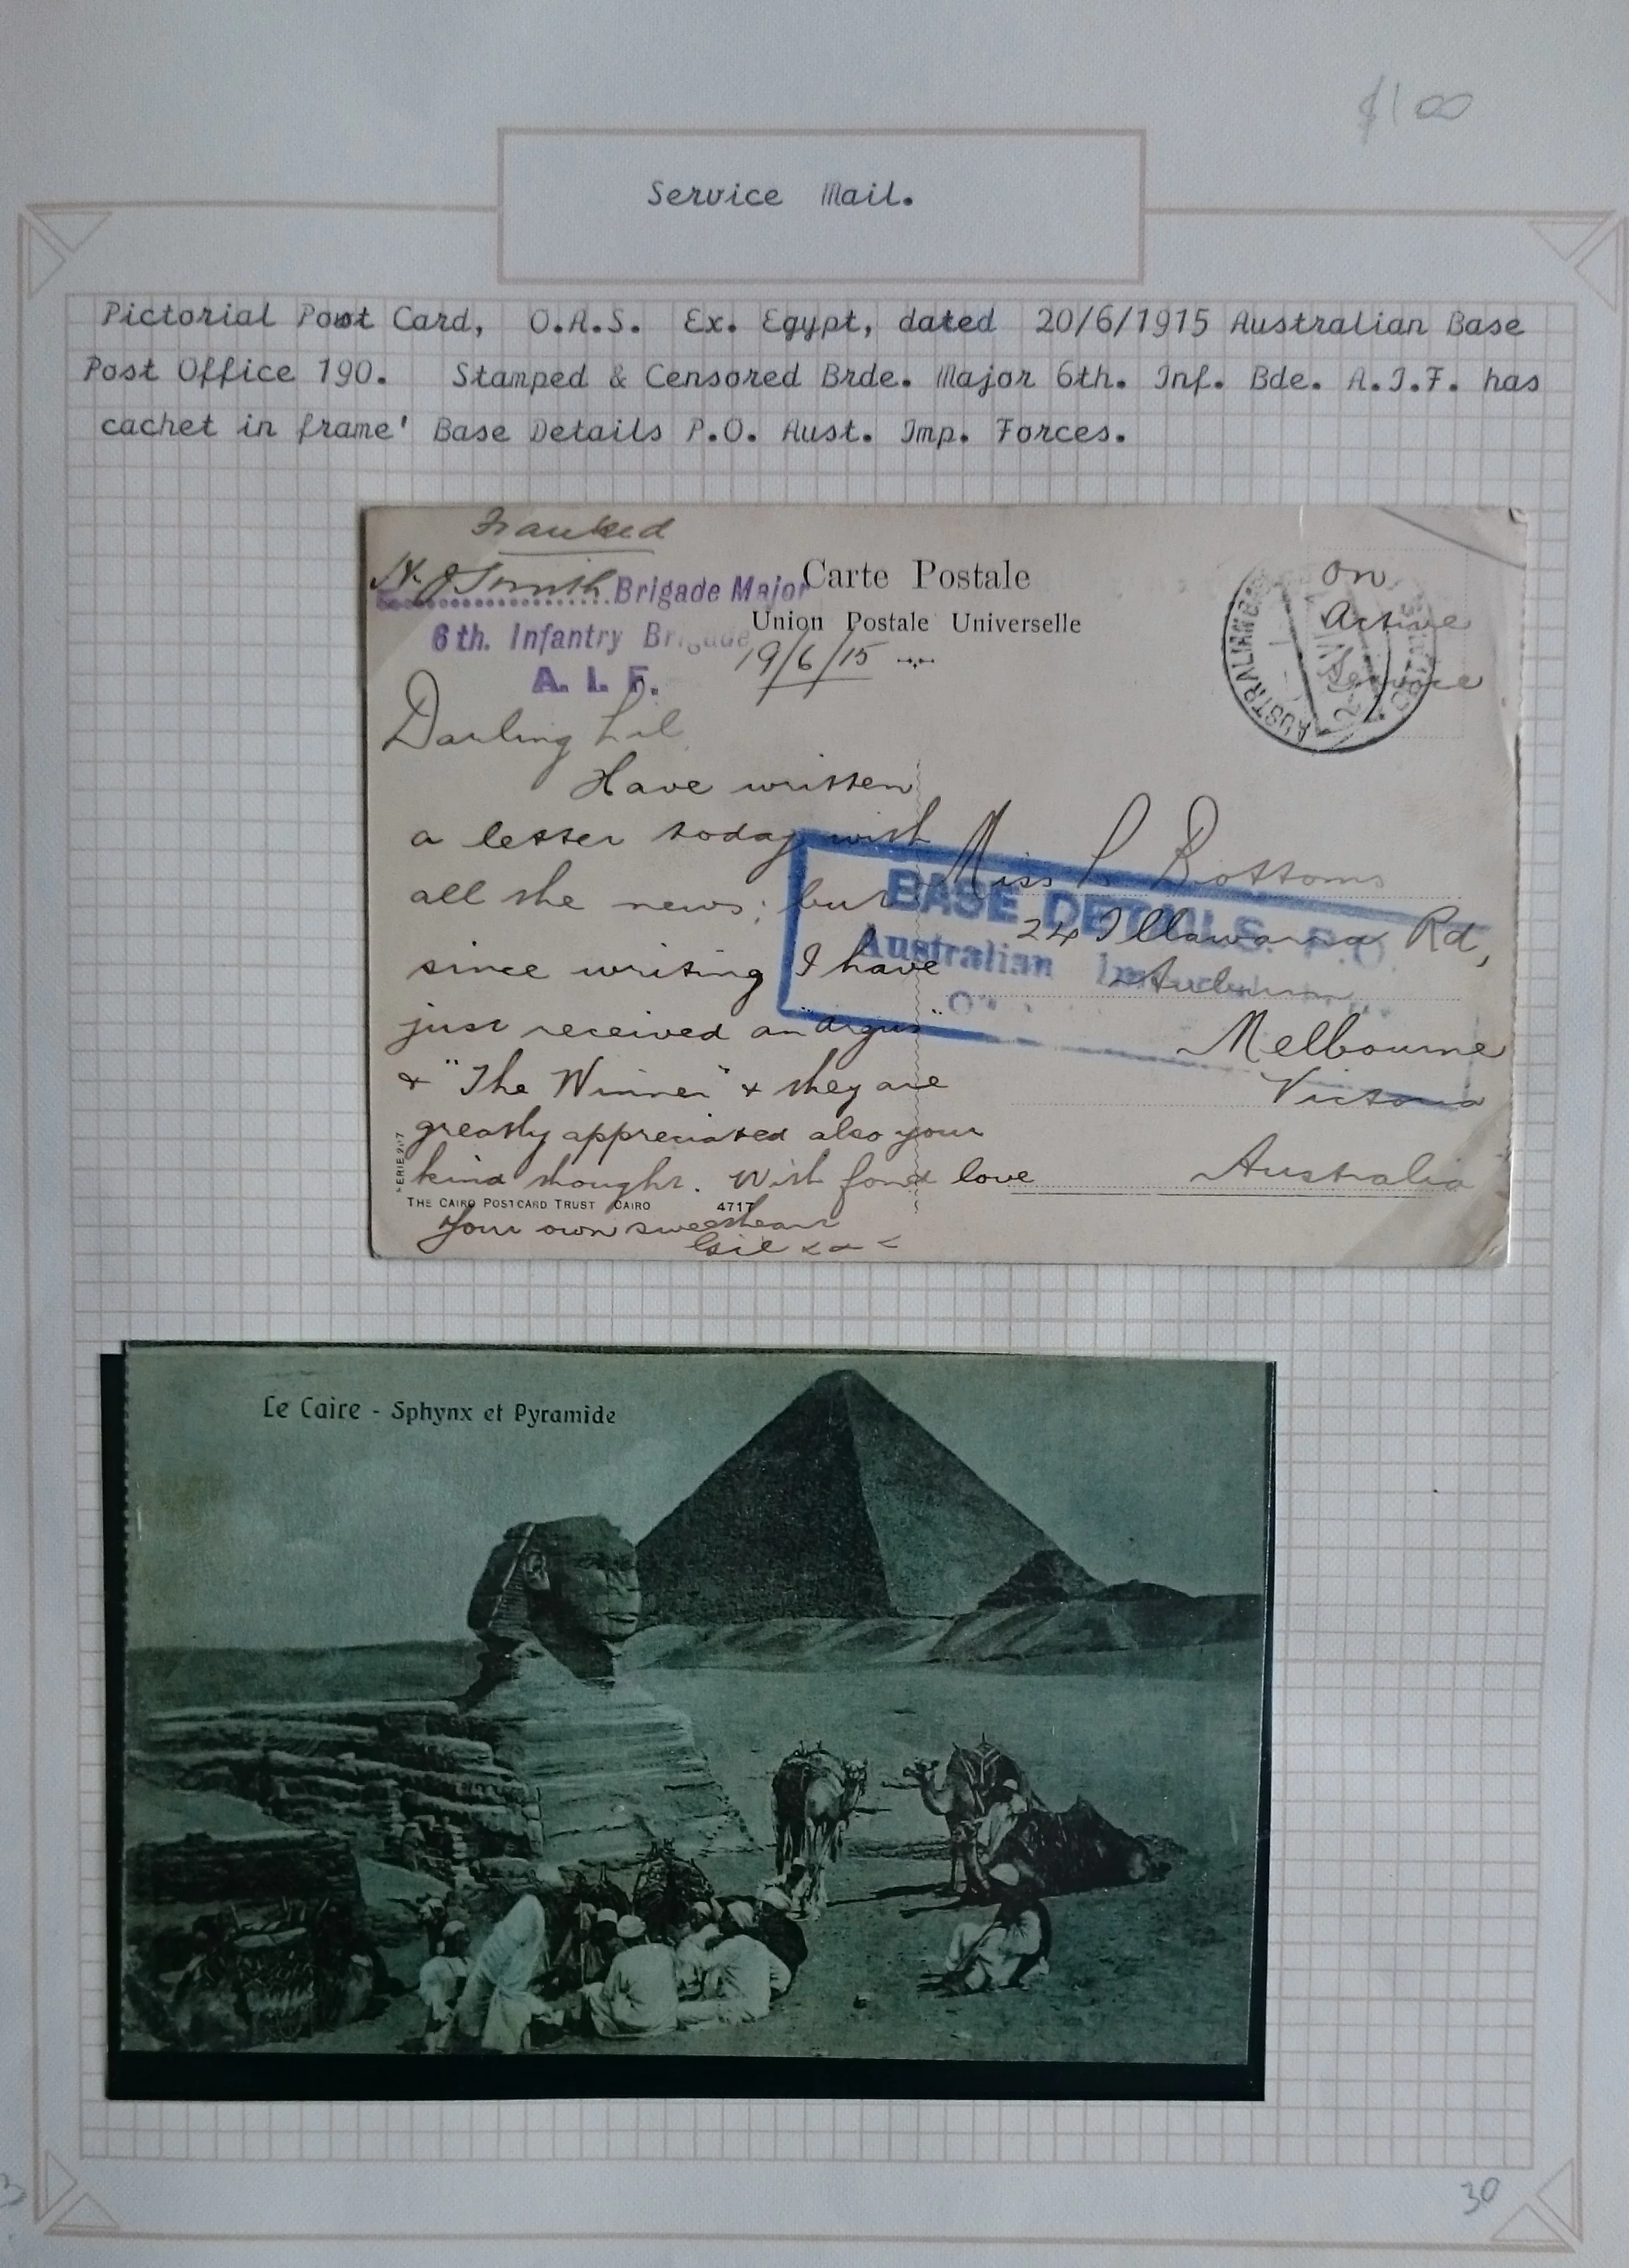 $100
Service Mail.
Pictorial Post Card, O.A.S. Ex. Egypt, dated 20/6/1915 Australian Base
Post Office 190. Stamped & Censored Brde. Major 6th. Inf. Bde. A.I.F. has
cachet in frame' Base Details P.O. Aust. Imp. Forces.
Franked
Smith Brigade Major
6th. Infantry Brigade
A. I. F.
Carte Postale
Union Postale Universelle
19/6/15
On
Active
Service
AUSTRALIAN BASE
Darling Lil
Have written
a letter today with
all the news; but
since writing I have
just received an "Argus"
& "The Winner" & they are
greatly appreciated also your
kind thought. With fond love
Your own sweetheart
Miss L Bottoms
24 Illawarra Rd,
Auburn
Melbourne
Victoria
Australia
BASE DETAILS P.O.
Australian
THE CAIRO POSTCARD TRUST CAIRO
4717
Le Caire - Sphynx et Pyramide
30